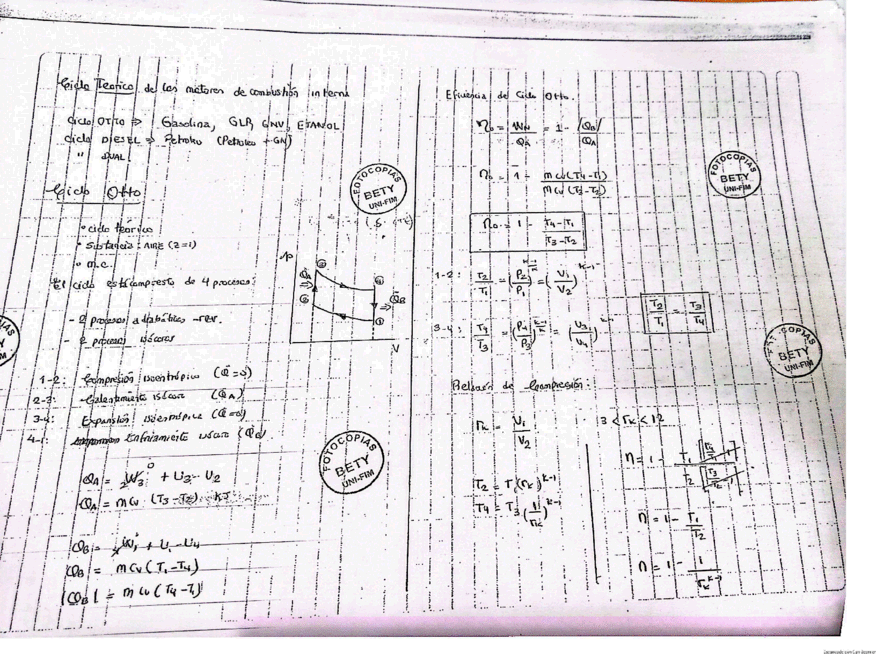 Ciclo Teorico de los motores de combustión interna
ciclo OTTO ⇒ Gasolina, GLP, GNV, ETANOL
ciclo DIESEL ⇒ Petroleo (Petroleo + GN)
" DUAL
Ciclo Otto
• ciclo teorico
• Sustancia: AIRE (Z=1)
• m.c.
El ciclo está compuesto de 4 procesos:
- 2 procesos adiabático - rev.
- 2 procesos isócoros
1-2: Compresión isentrópico (Q=0)
2-3: Calentamiento isócoro (QA)
3-4: Expansión isentrópica (Q=0)
4-1: Enfriamiento isócoro (QB)
QA = 2W3 0 + U3 - U2
QA = m cv (T3 - T2) KJ
QB = 4W1 + U1 - U4
QB = m cv (T1 - T4)
|QB| = m cv (T4 - T1)
P
QA
QB
③
④
②
①
V
FOTOCOPIAS
BETY
UNI-FIM
FOTOCOPIAS
BETY
UNI-FIM
Eficiencia de Ciclo Otto.
ηo = WN / QA = 1 - |QB| / QA
ηo = 1 - m cv (T4 - T1) / m cv (T3 - T2)
ηo = 1 - T4 - T1 / T3 - T2
1-2: T2/T1 = (P2/P1)^k-1/k = (V1/V2)^k-1
3-4: T4/T3 = (P4/P3)^k-1/k = (V3/V4)^k-1
T2/T1 = T3/T4
Relación de Compresión:
rk = V1/V2
3 < rk < 12
T2 = T1 (rk)^k-1
T4 = T3 (1/rk)^k-1
η = 1 - T1 [T4/T1 - 1] / T2 [T3/T2 - 1]
η = 1 - T1/T2
η = 1 - 1/rk^k-1
FOTOCOPIAS
BETY
UNI-FIM
COPIAS
BETY
UNI-FIM